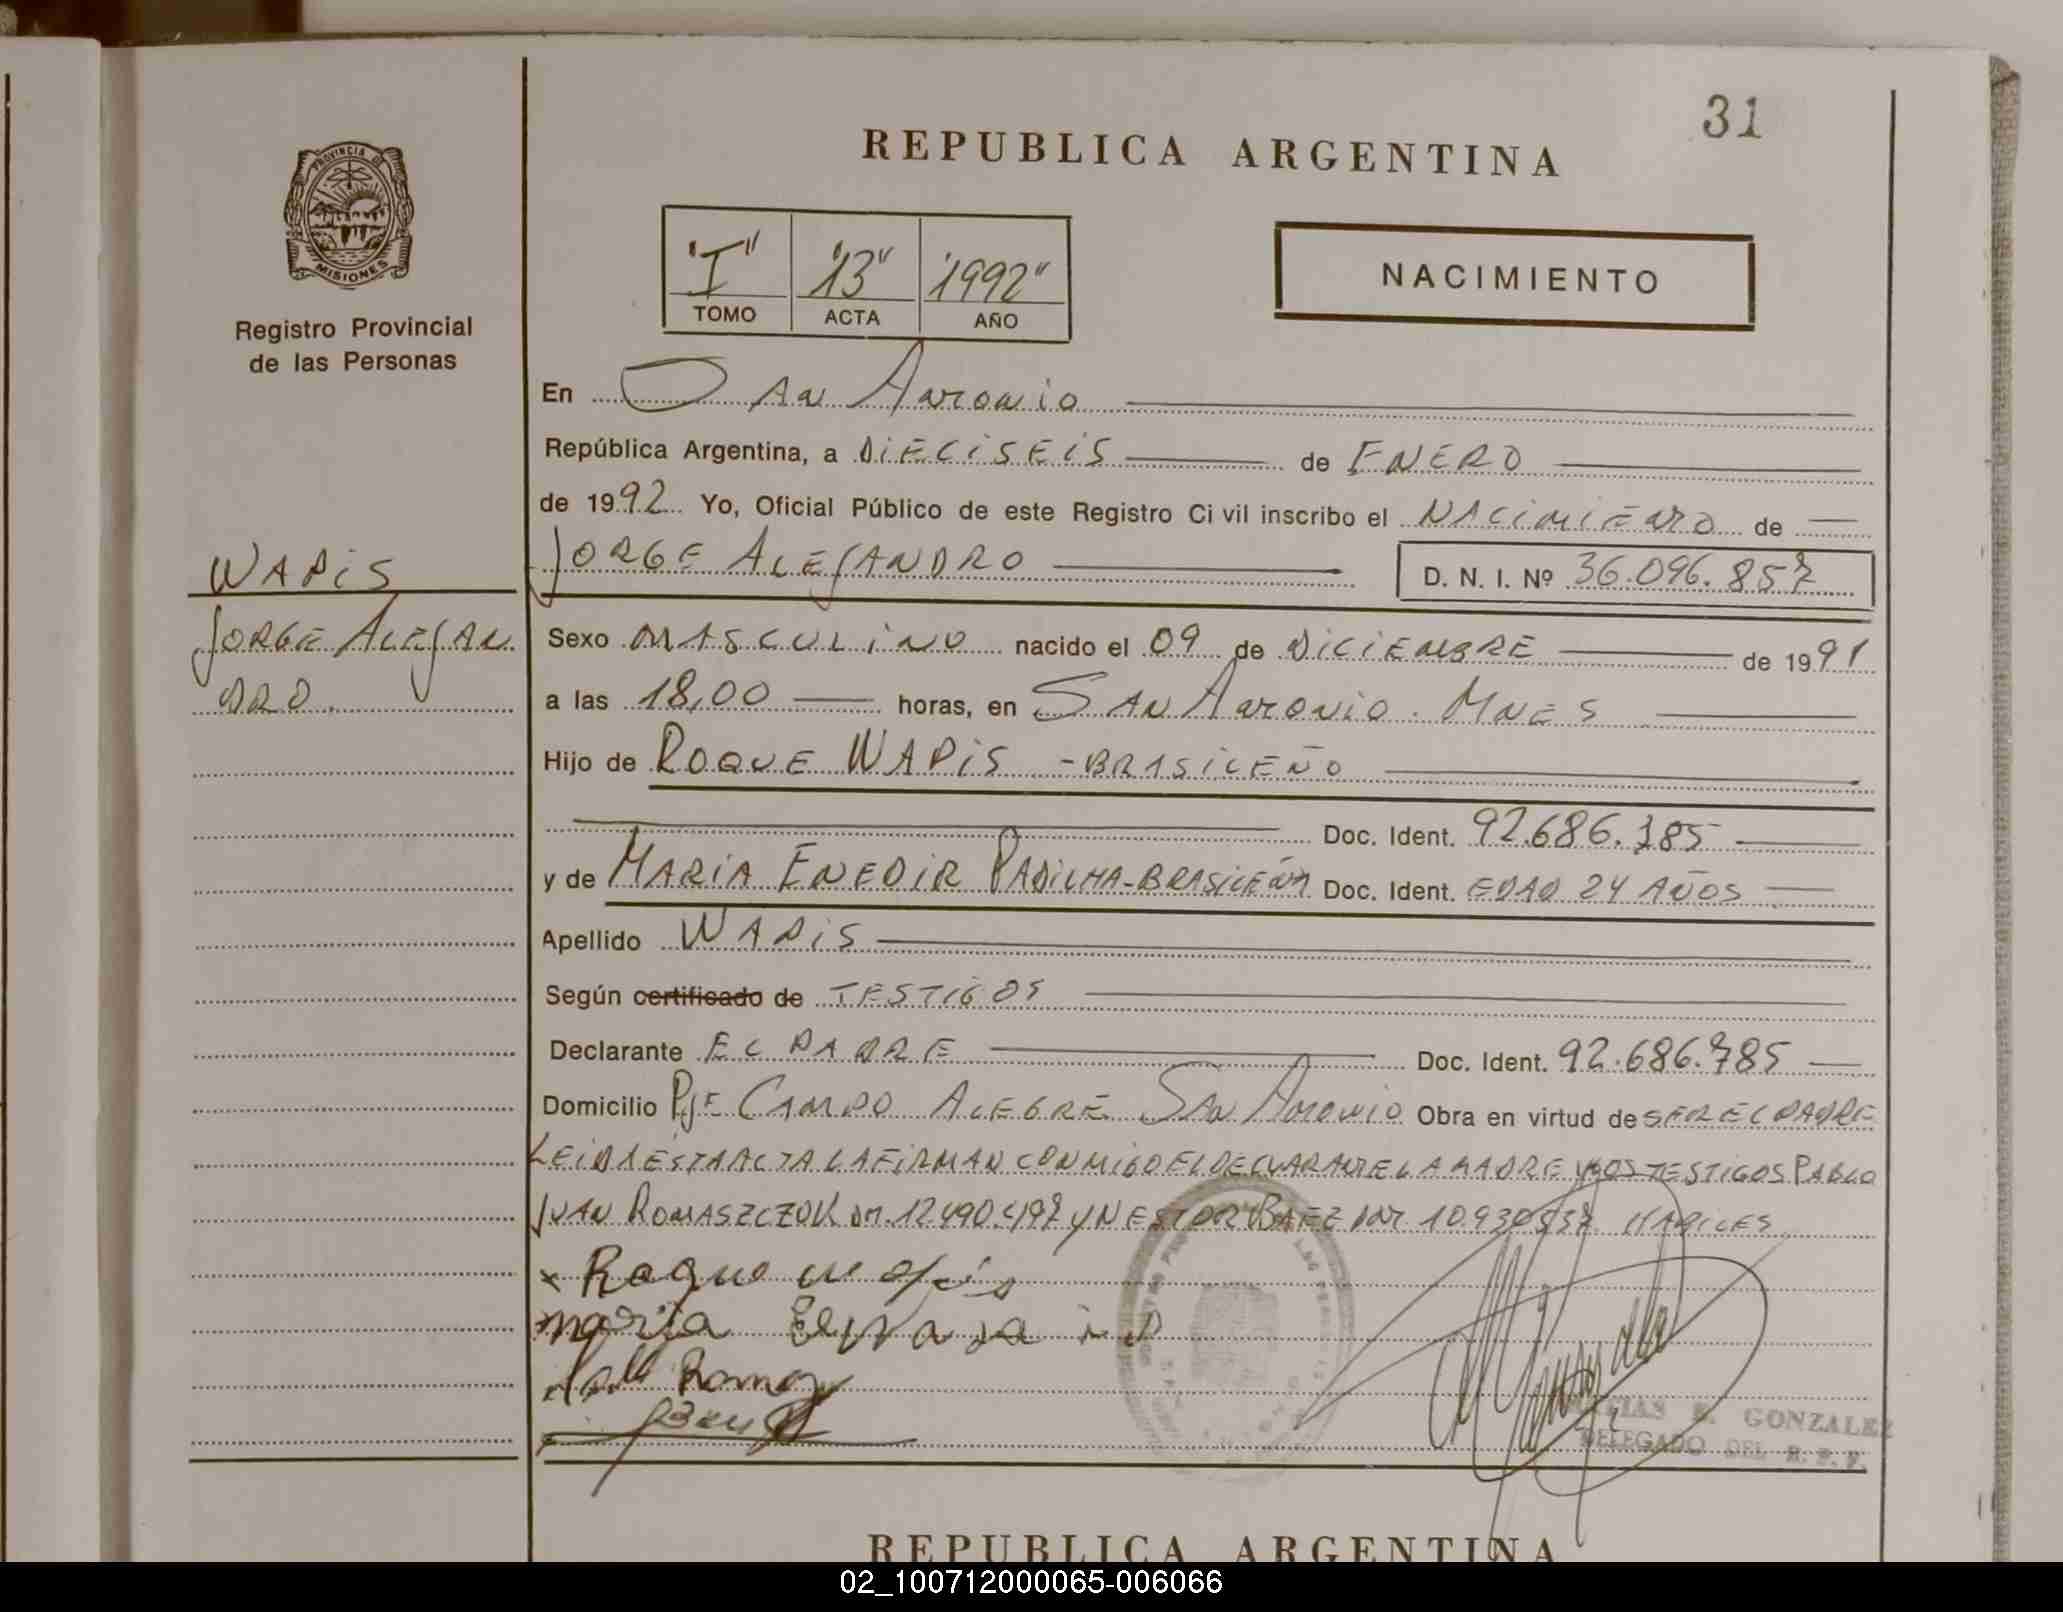 31
REPUBLICA ARGENTINA
PROVINCIA DE
MISIONES
Registro Provincial
de las Personas
"I" "13" "1992"
TOMO ACTA AÑO
NACIMIENTO
En San Antonio
República Argentina, a DIECISEIS de ENERO
de 1992 Yo, Oficial Público de este Registro Civil inscribo el NACIMIENTO de
JORGE ALEJANDRO D. N. I. Nº 36.096.857
WAPIS
JORGE ALEJAN
DRO.
Sexo MASCULINO nacido el 09 de DICIEMBRE de 1991
a las 18,00 horas, en SAN ANTONIO. MNES
Hijo de ROQUE WAPIS - BRASILEÑO
Doc. Ident. 92.686.785
y de MARIA ENEDIR PADILHA - BRASILEÑA Doc. Ident. EDAD 24 AÑOS
Apellido WAPIS
Según certificado de TESTIGOS
Declarante EL PADRE Doc. Ident. 92.686.785
Domicilio PJE CAMPO ALEGRE SAN ANTONIO Obra en virtud de SER EL PADRE
LEIDA ESTA ACTA LA FIRMAN CONMIGO EL DECLARANTE LA MADRE Y LOS TESTIGOS PABLO
JUAN ROMASZCZUK DNI. 12.490.497 Y NESTOR BAEZ DNI 10.930.537 HABILES
x Roque wapis
maria
Romaz
MATIAS R. GONZALEZ
DELEGADO DEL R. P. P.
REPUBLICA ARGENTINA
02_100712000065-006066